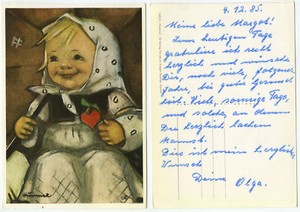 9.12.85.
Meine liebe Margot!
Zum heutigen Tage
gratuliere ich recht
herzlich und wünsche
Dir, noch viele,
Jahre, bei guter Gesund-
heit. Viele, sonnige Tage,
und solche, an denen
Du herzlich lachen
kannst.
Dies ist mein herzlich.
Wunsch
Deine
Olga.
Hummel